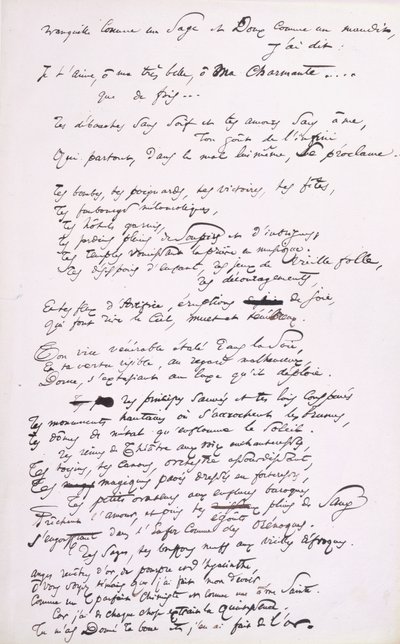 Tranquille comme un Sage et Doux comme un maudit,
j'ai dit :
Je t'aime, ô ma très belle, ô ma Charmante....
que de fois...
Tes débauches sans soif et tes amours sans âme,
Ton goût de l'infini
Qui partout, dans le mal lui même, se proclame.
Tes bombes, tes poignards, tes victoires, tes fêtes,
Tes faubourgs mélancoliques,
Tes hôtels garnis,
Tes jardins pleins de Soupirs et d'intrigues,
Tes temples vomissant la prière en musique,
Tes désespoirs d'enfant, tes jeux de Vieille folle,
Tes découragements,
Et tes feux d'Artifice, éruptions de joie,
Qui font rire le Ciel, muet et ténébreux.
Ton vice vénérable étalé dans la Soie,
Et ta vertu risible, au regard malheureux,
Douce, s'extasiant au luxe qu'il déploie.
Tes principes sauvés et tes lois conspuées
Tes monuments hautains où s'accrochent les brumes,
Tes dômes de métal qu'enflamme le Soleil.
Tes reines de Théâtre aux voix enchanteresses,
Tes tocsins, tes canons, orchestre assourdissant
Tes magiques pavés dressés en forteresses,
Tes petits orateurs aux enflures baroques
Prêchant l'amour, et puis tes égouts pleins de Sang
S'engouffrant dans l'Enfer comme des Orénoques.
Tes Sages, tes bouffons neufs aux vieilles défroques.
Anges revêtus d'or, de pourpre et d'hyacinthe,
Ô vous soyez témoins que j'ai fait mon devoir
Comme un parfait Chimiste et comme une âme Sainte.
Car j'ai de chaque chose extrait la quintessence,
Tu m'as Donné ta boue et j'en ai fait de l'or.